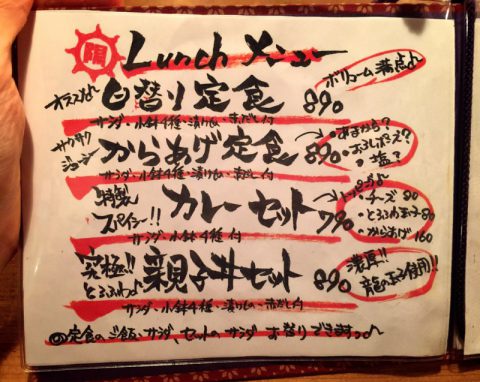 限 Lunch メニュー
オススメ♪ 日替り定食 890 ボリューム満点♪
サラダ・小鉢4種・漬け物・赤だし付
サクサクジューシー からあげ定食 890 ・あまから?
・おろしポン? 
・塩?
サラダ・小鉢4種・漬け物・赤だし付
特製スパイシー!! カレーセット 790 トッピング♪
・チーズ 80
・とろふわ玉子 80
・からあげ 160
サラダ・小鉢4種付
究極!!とろふわ♪ 親子丼セット 890 濃厚!!
龍のたまご使用!!
サラダ・小鉢4種・漬け物・赤だし付
◎定食のご飯、サラダ、セットのサラダ お替りできますっ♪